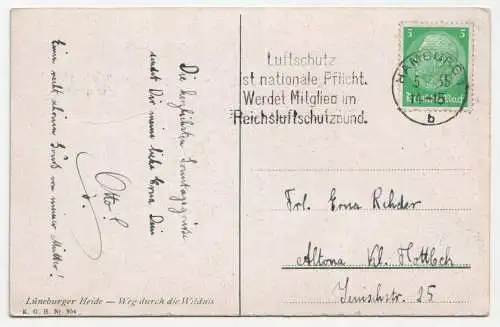 Die herzlichsten Sonntagsgrüsse
sendet Dir meine liebe Erna Dein
Otto!
Einen recht schönen Gruß von meiner Mutter!
Lüneburger Heide – Weg durch die Wildnis
K. G. H. Nr. 904
Luftschutz
ist nationale Pflicht.
Werdet Mitglied im
Reichsluftschutzbund.
HAMBURG
b
5 5
Deutsches Reich
Frl. Erna Rehder
Altona Kl. Flottbeck
Jenischstr. 25